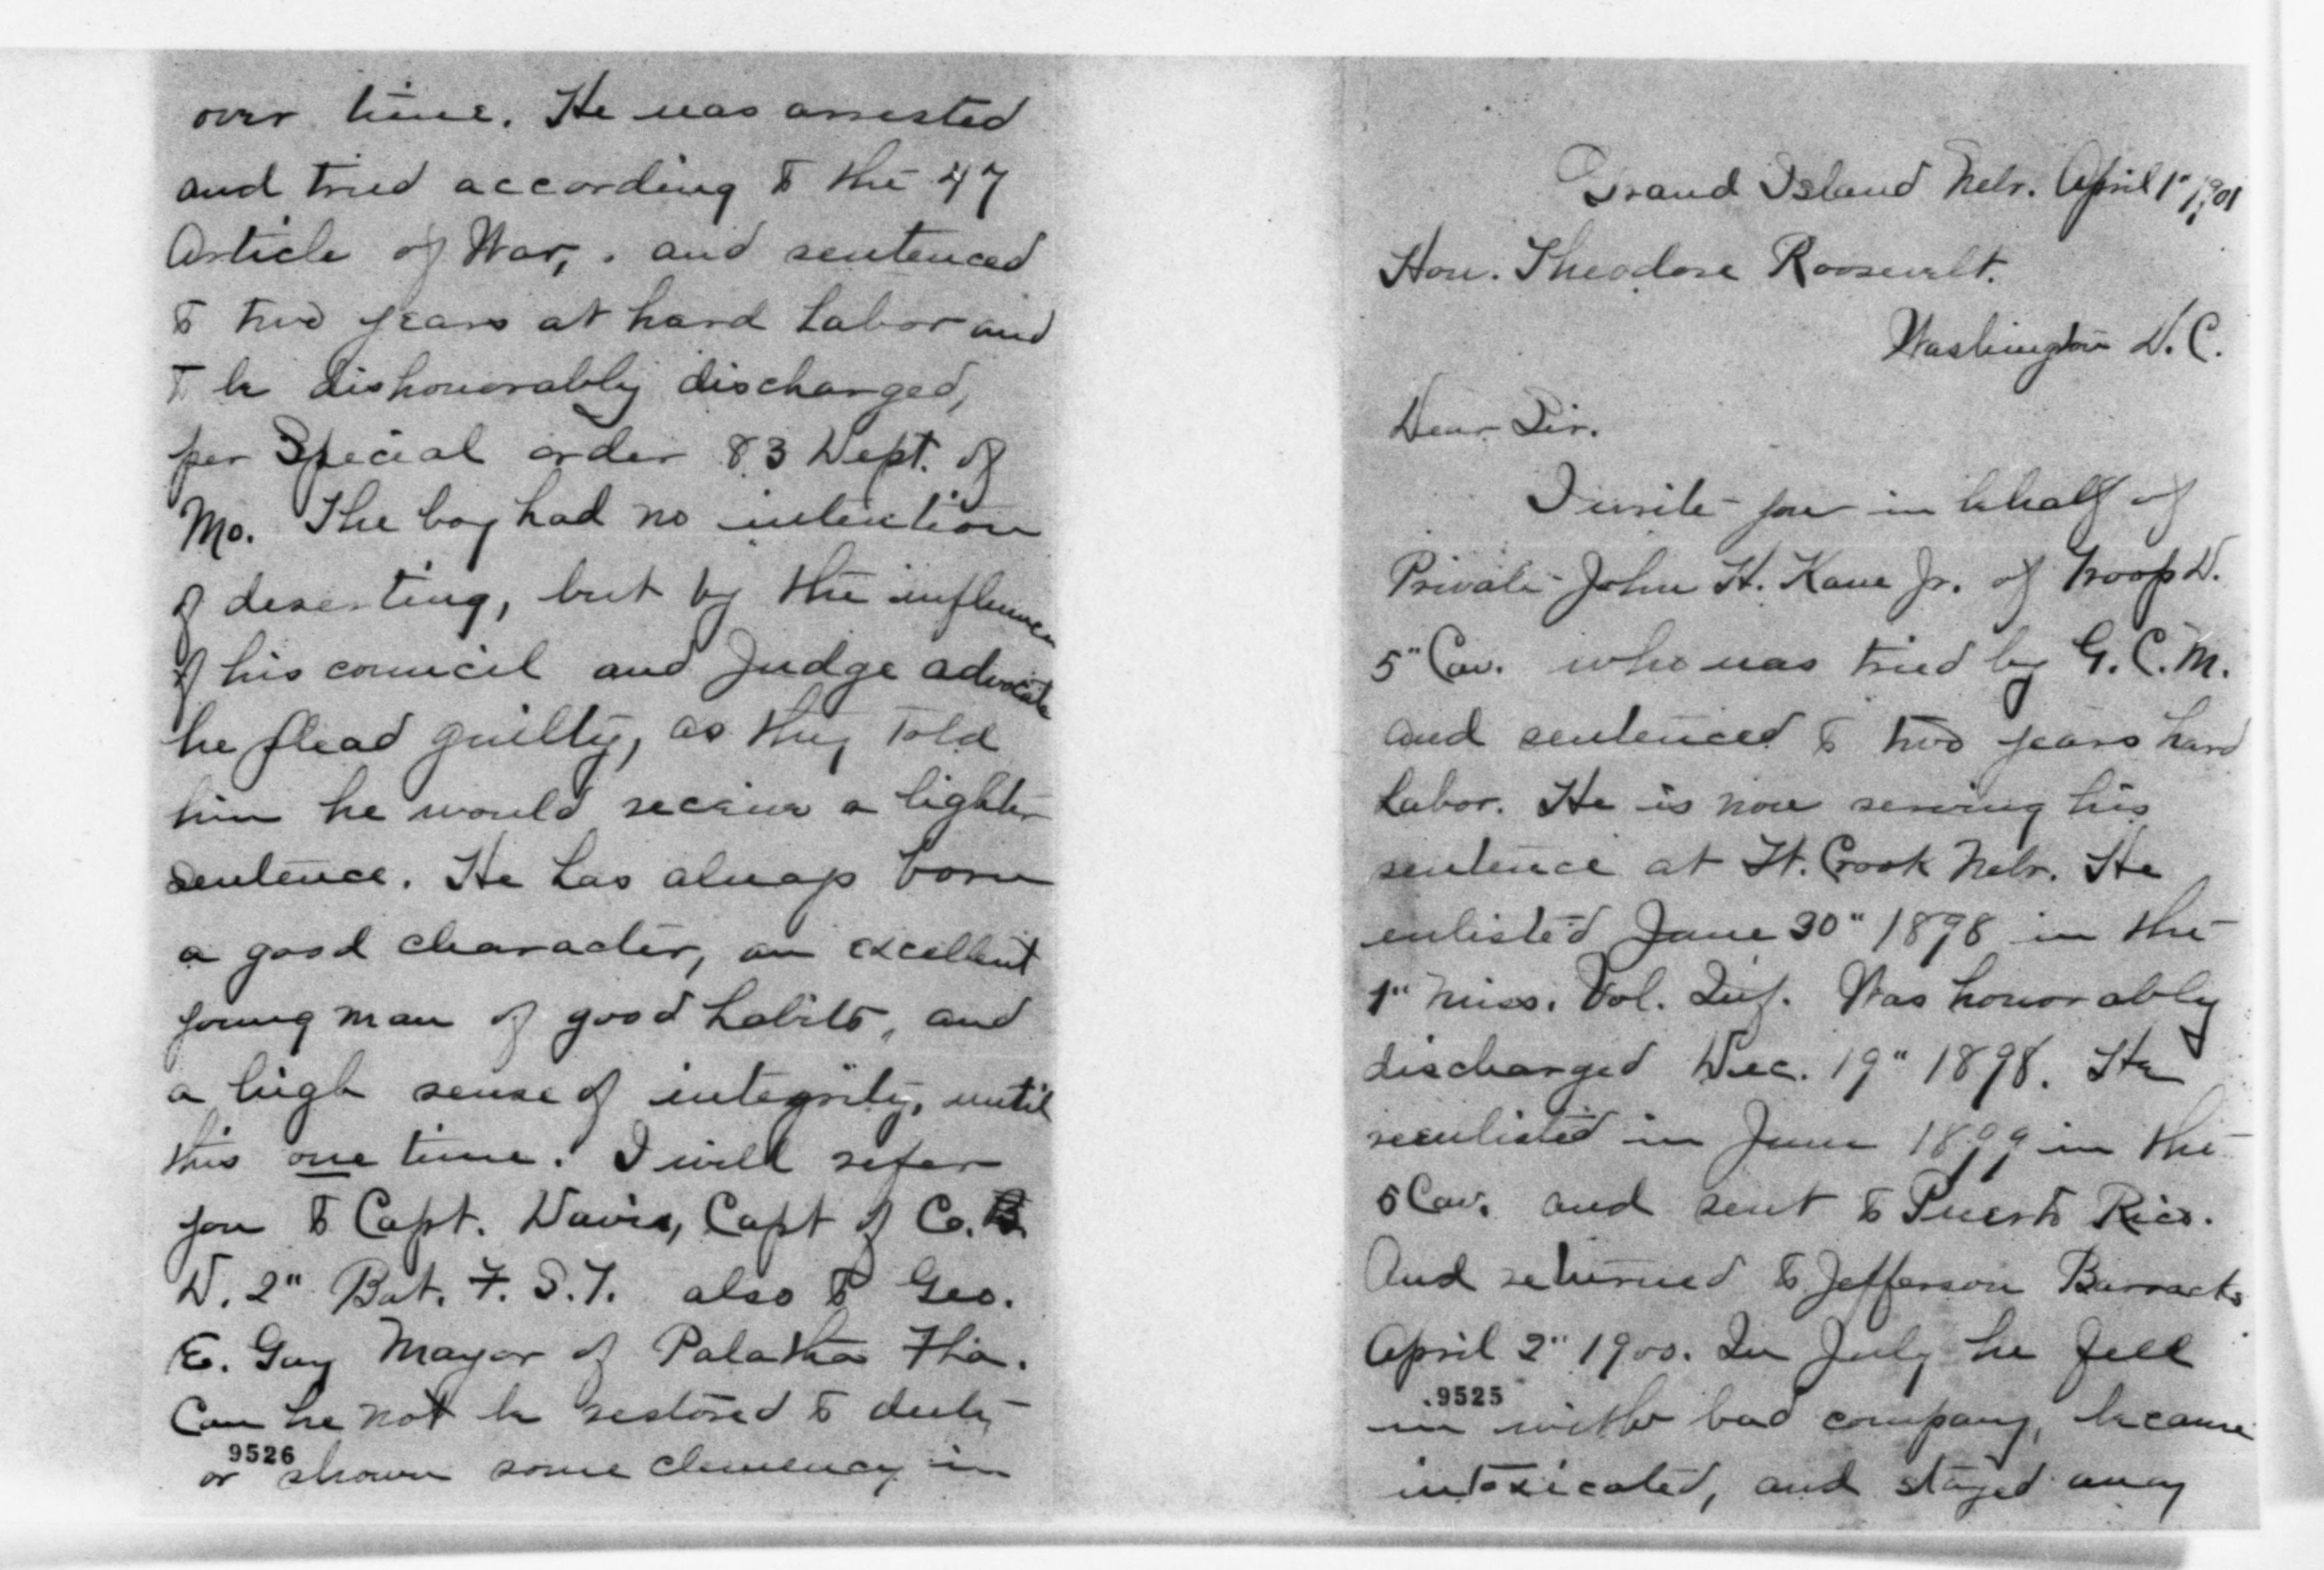 Grand Island Nebr. April 1" 1901
Hon. Theodore Roosevelt.
Washington D.C.
Dear Sir.
I write you in behalf of
Private John H. Kane Jr. of Troop D.
5" Cav. who was tried by G.C.M.
and sentenced to two years hard
labor. He is now serving his
sentence at Ft. Crook Nebr. He
enlisted June 30" 1898 in the
1" Miss. Vol. Inf. Was honorably
discharged Dec. 19" 1898. He
reenlisted in June 1899 in the
5 Cav. and sent to Puerto Rico.
And returned to Jefferson Barracks
April 2" 1900. In July he fell
.9525
in with bad company, became
intoxicated, and stayed away
over time. He was arrested
and tried according to the 47
Article of War, . and sentenced
to two years at hard labor and
to be dishonorably discharged,
per Special order 83 Dept. of
Mo. The boy had no intention
of deserting, but by the influence
of his council and Judge advocate
he plead guilty, as they told
him he would receive a lighter
sentence. He has always born
a good character, an excellent
young man of good habits, and
a high sense of integrity, until
this one time. I will refer
you to Capt. Davis, Capt of Co.
D. 2" Bat. F.S.T. also to Geo.
E. Gay Mayor of Palatka Fla.
Can he not be restored to duty
9526
or shown some clemency in